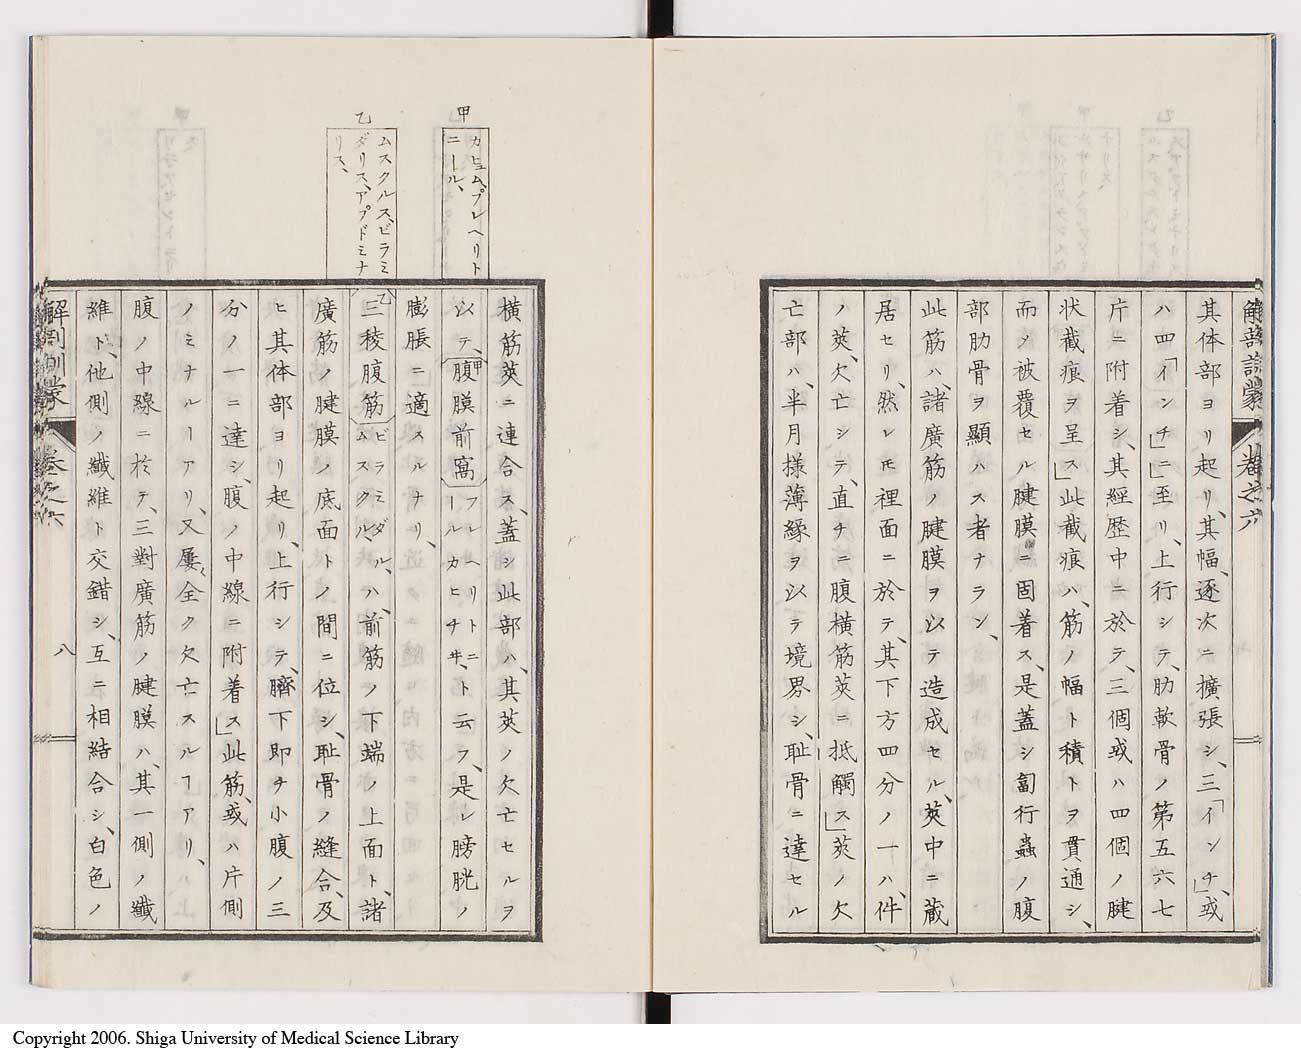 其体部ヨリ起リ、其幅、逐次ニ擴張シ、三「インチ」、或
ハ四「インチ」ニ至リ、上行シテ、肋軟骨ノ第五六七
片ニ附着シ、其經歴中ニ於テ、三個或ハ四個ノ腱
状截痕ヲ呈ス」此截痕ハ、筋ノ幅ト積トヲ貫通シ、
而ノ被覆セル腱膜ニ固着ス、是蓋シ匐行蟲ノ腹
部肋骨ヲ顯ハス者ナラン、
此筋ハ、諸廣筋ノ腱膜ヲ以テ造成セル、莢中ニ蔵
居セリ、然レ𪜈裡面ニ於テ、其下方四分ノ一ハ、件
ノ莢、欠亡シテ、直チニ腹横筋莢ニ抵觸ス」莢ノ欠
亡部ハ、半月様薄縁ヲ以テ境界シ、耻骨ニ達セル
解剖訓蒙
卷之六
甲
カヒュム、プレヘリト
ニール、
乙
ムスクルス、ピラミ
ダリス、アプドミナ
リス、
横筋莢ニ連合ス、蓋シ此部ハ、其莢ノ欠亡セルヲ
以テ、甲腹膜前窩プレヘリトニールカヒチヰ、ト云フ、是レ膀胱ノ
膨脹ニ適スルナリ、
乙三稜腹筋ピラミダル、ムスクル、ハ、前筋ノ下端ノ上面ト、諸
廣筋ノ腱膜ノ底面トノ間ニ位シ、耻骨ノ縫合、及
ヒ其体部ヨリ起リ、上行シテ、臍下即チ小腹ノ三
分ノ一ニ達シ、腹ノ中線ニ附着ス」此筋、或ハ片側
ノミナルヿアリ、又屢〻全ク欠亡スルヿアリ、
腹ノ中線ニ於テ、三對廣筋ノ腱膜ハ、其一側ノ纖
維ト、他側ノ纖維ト交錯シ、互ニ相結合シ、白色ノ
解剖訓蒙
卷之六
八
Copyright 2006. Shiga University of Medical Science Library